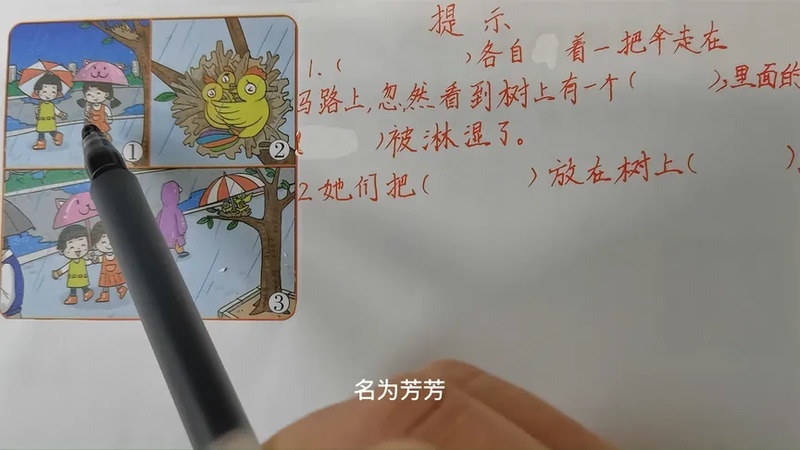 提示
1.( )各自 着一把伞走在
马路上,忽然看到树上有一个( ),里面的
( )被淋湿了。
2.她们把( )放在树上( ),
①
②
③
名为芳芳